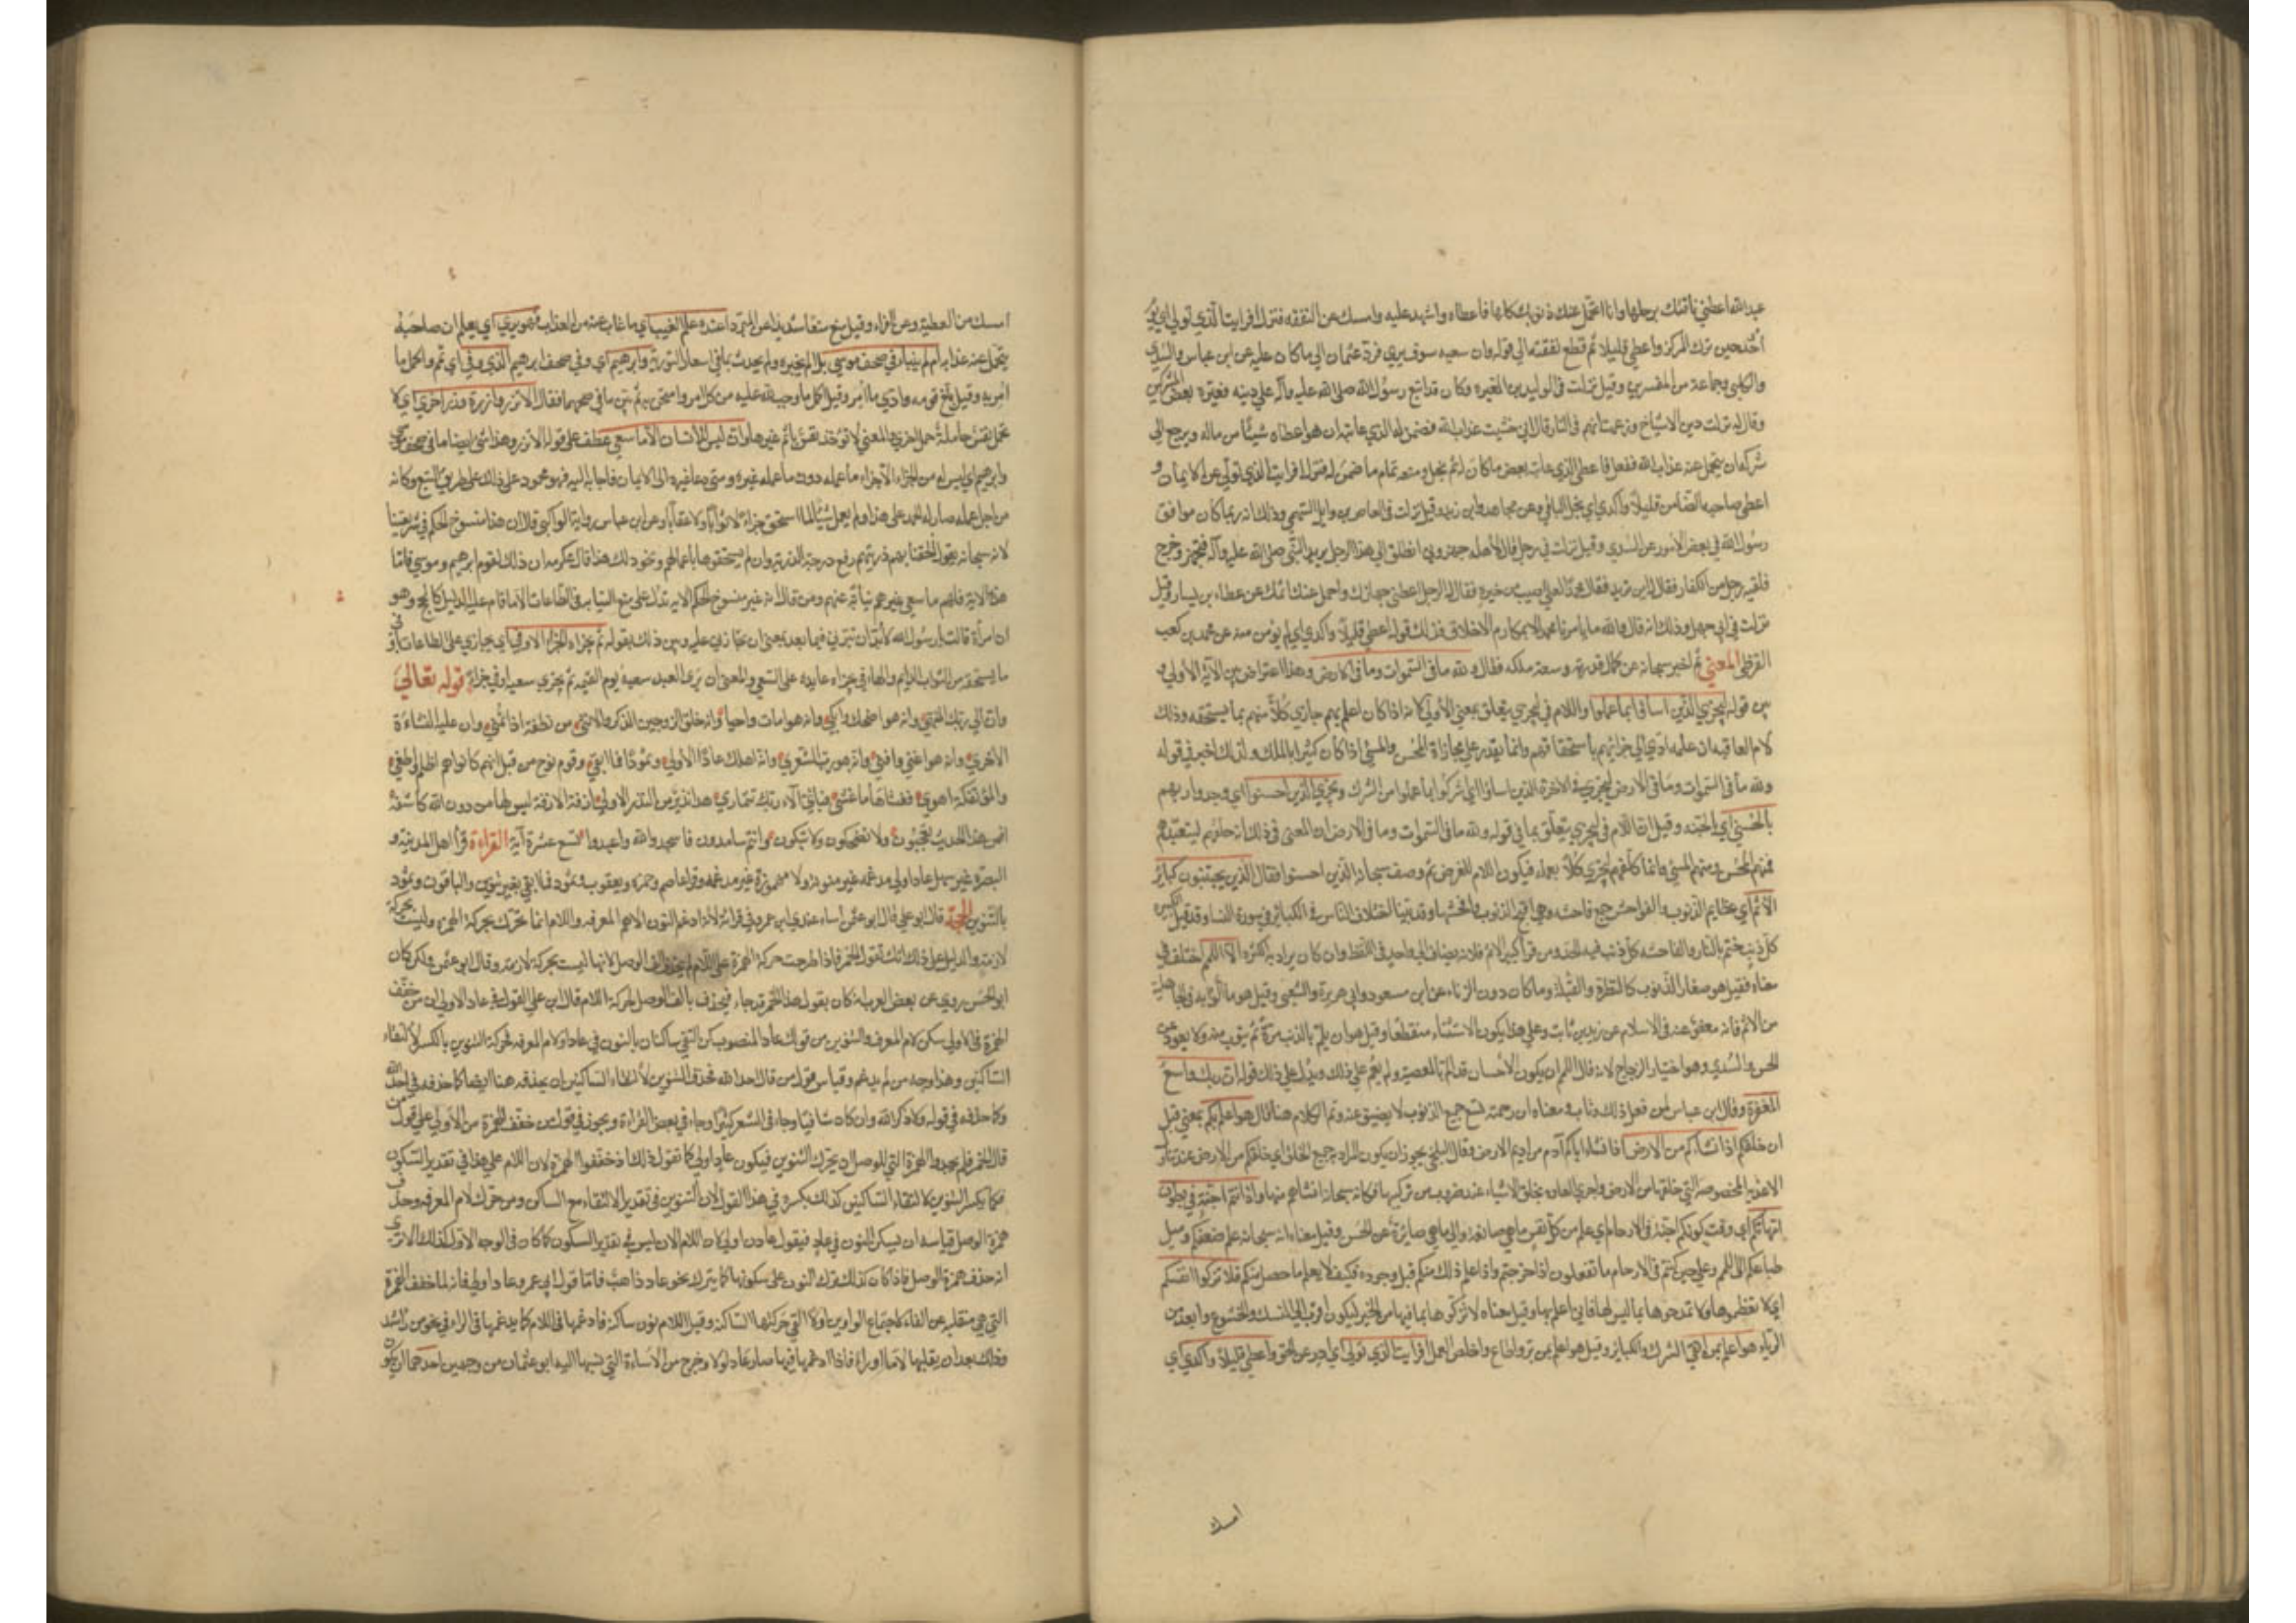 عبد الله اعطني ناقتك برحلها وانا اتحمل عنك ذنوبك كلها فاعطاه واشهد عليه وامسك عن النفقه فنزلت افرايت الذي تولي اي يوم
أحد حين ترك المركز واعطي قليلا ثم قطع نفقته الي قوله وان سعيه سوف يري فرد عثمان الي ما كان عليه عن ابن عباس والسدي
والكلبي وجماعة من المفسرين وقيل نزلت في الوليد بن المغيره وكان قد اتبع رسول الله صلى الله عليه وآله علي دينه فعيره بعض المشركين
وقال له تركت دين الاشياخ وزعمت انهم في النار قال اني خشيت عذاب الله فضمن له الذي عاتبه ان هو اعطاه شيئا من ماله ويرجع الي
شركه ان يتحمل عنه عذاب الله ففعل فاعطي الذي عاتبه بعض ما كان له ثم بخل ومنعه تمام ما ضمن له فنزلت افرايت الذي تولي عن الايمان و
اعطي صاحبه الضامن قليلا وأكدي اي بخل بالباقي وعن مجاهد وابن زيد وقيل نزلت في العاص بن وايل السهمي وذلك انه ربما كان موافق
رسول الله في بعض الامور عن السدي وقيل نزلت في رجل قال لاهله جهزوني انطلق الي هذا الرجل يريد النبي صلى الله عليه وآله فتجهز وخرج
فلقيه رجل من الكفار فقال له اين تريد فقال محمدا لعلي اصيب من خيره فقال له الرجل اعطني جهازك واحمل عنك اثمك عن عطاء بن يسار وقيل
نزلت في ابي جهل وذلك انه قال والله ما يامرنا محمد الا بمكارم الاخلاق فذلك قوله اعطي قليلا وأكدي اي لم يؤمن منه عن محمد بن كعب
القرظي المعني ثم اخبر سبحانه عن كمال قدرته وسعة ملكه فقال ولله ما في السموات وما في الارض وهذا اعتراض بين الآية الأولي و
بين قوله ليجزي الذين اساؤا بما عملوا واللام في ليجزي يتعلق بمعني الأولي لانه اذا كان اعلم بهم جازي كلا منهم بما يستحقه وذلك
لام العاقبه ان علمه ادي الي جزائهم باستحقاقهم وانما يقدر علي مجازاة المحسن والمسئ اذا كان كثير الملك ولذلك اخبر في قوله
ولله ما في السموات وما في الارض ليجزي في الاخرة الذين اساؤا اي اشركوا بما عملوا من الشرك ويجزي الذين احسنوا اي وحدوا ربهم
بالحسني اي الجنه وقيل ان اللام في ليجزي يتعلق بما في قوله ولله ما في السموات وما في الارض لان المعني في ذلك انه خلقهم ليتعبدهم
فمنهم المحسن ومنهم المسئ وانما كلفهم ليجزي كلا بعمله فيكون اللام للغرض ثم وصف سبحانه الذين احسنوا فقال الذين يجتنبون كبائر
الاثم اي عظايم الذنوب والفواحش جمع فاحشه وهي اقبح الذنوب وافحشها وقد بينا اختلاف الناس في الكبائر في سورة النساء وقد قيل الكبيره
كل ذنب ختم بالنار والفاحشه كل ذنب فيه الحد ومن قرأ كبير الاثم فلانه يضاف الي واحد في اللفظ وان كان يراد به الكثرة الا اللمم اختلف في
معناه فقيل هو صغار الذنوب كالنظرة والقبلة وما كان دون الزناء عن ابن مسعود وابي هريرة والشعبي وقيل هو ما ألموا به في الجاهلية
من الاثم فانه معفو عنه في الاسلام عن زيد بن ثابت وعلي هذا يكون الاستثناء منقطعا وقيل هو ان يلم بالذنب مرة ثم يتوب منه ولا يعود عن
الحسن والسدي وهو اختيار الزجاج لانه قال اللمم ان يكون الانسان قد الم بالمعصية ولم يقم علي ذلك ويدل علي ذلك قوله ان ربك واسع
المغفرة وقال ابن عباس لمن فعل ذلك وتاب ومعناه ان رحمته تسع جميع الذنوب لا يضيق عنه وتم الكلام هنا ثم قال هو اعلم بكم يعني قبل
ان خلقكم اذ انشاكم من الارض اي انشأ اباكم آدم من اديم الارض وقال البلخي يجوز ان يكون المراد به جميع الخلق اي خلقكم من الارض عند تناول
الاغذيه المخصوصه التي خلقها من الارض واجري العاده بخلق الاشياء عند ضروب من تركيبها فكانه سبحانه انشاهم منها واذ انتم اجنة في بطون
امهاتكم اي وقت كونكم اجنة في الارحام اي علم من كل نفس ما هي صانعة والي ما هي صائرة عن الحسن وقيل معناه انه سبحانه علم ضعفكم وميل
طباعكم الي اللمم وعلم حين كنتم في الارحام ما تفعلون اذا خرجتم واذا علم ذلك منكم قبل وجوده فكيف لا يعلم ما حصل منكم فلا تزكوا انفسكم
اي لا تعظموها ولا تمدحوها بما ليس لها فاني اعلم بها وقيل معناه لا تزكوها بما فيها من الخير ليكون اقرب الي النسك والخشوع وابعد من
الرياء هو اعلم بمن اتقي الشرك والكبائر وقيل هو اعلم بمن بر واطاع واخلص العمل افرايت الذي تولي اي ادبر عن الحق واعطي قليلا وأكدي اي
امسك
امسك عن العطية وعن الفراء وقيل منع منعا شديدا عن المبرد اعنده علم الغيب اي ما غاب عنه من العذاب فهو يري اي يعلم ان صاحبه
يتحمل عنه عذابه ام لم ينبا بما في صحف موسي بل الم يخبر ولم يحدث بما في اسفار التورية وابرهيم اي وفي صحف ابرهيم الذي وفي اي تم واكمل ما
امر به وقيل بلغ قومه وادي ما امر به وقيل اكمل ما اوجب الله عليه من كل امر وامتحن به ثم بين ما في صحفهما فقال الا تزر وازرة وزر اخري اي لا
تحمل نفس حاملة حمل اخري والمعني لا تؤخذ نفس باثم غيرها وان ليس للانسان الا ما سعي عطف علي قوله الا تزر وهذا شئ ايضا ما في صحف موسي
وابرهيم اي ليس له من الجزاء الا جزاء ما عمله دون ما عمله غيره ومتي دعا غيره الى الايمان فاجابه اليه فهو محمود علي ذلك علي طريق التبع وكانه
من اجل عمله صار له الحمد علي هذا ولو لم يعمل شيئا لما استحق جزاء لا ثوابا ولا عقابا وعن ابن عباس برواية الوالبي قال ان هذا منسوخ الحكم في شريعتنا
لانه سبحانه يقول الحقنا بهم ذريتهم رفع درجة الذرية وان لم يستحقوها باعمالهم ونحو ذلك هذا قال عكرمه ان ذلك لقوم ابرهيم وموسي فاما
هذه الامة فلهم ما سعي غيرهم نيابة عنهم ومن قال انه غير منسوخ الحكم الاية تدل علي منع النيابه في الطاعات الا ما قام عليه الدليل كالحج وهو
ان امرأة قالت يا رسول الله
ما يستحقه من الثواب الدائم والهاء في يجزاه عايده علي السعي والمعني ان يري العبد سعيه يوم القيمه ثم يجزي سعيه اوفي الجزاء قوله تعالي
وان الي ربك المنتهي وانه هو اضحك وابكي وانه هو امات واحيا وانه خلق الزوجين الذكر والانثي من نطفة اذا تمني وان عليه النشاءة
الاخري وانه هو اغني واقني وانه هو رب الشعري وانه اهلك عادا الأولي وثمودا فما ابقي وقوم نوح من قبل انهم كانوا هم اظلم واطغي
والمؤتفكة اهوي فغشاها ما غشي فبأي آلاء ربك تتماري هذا نذير من النذر الاولي ازفة الازفة ليس لها من دون الله كاشفة
افمن هذا الحديث تعجبون ولا تضحكون ولا تبكون وانتم سامدون فاسجدوا لله واعبدوا تسع عشرة آية القراءة قرأ اهل المدينة و
البصره غير سهل عادا ولي مدغمة غير منونه ولا مهموزة غير مدغمة وقرا عاصم وحمزه ويعقوب وثمود فما ابقي بغير تنوين والباقون وثمود
بالتنوين الحجة قال ابو علي قال ابو عثمن اساء عندي ابن عمرو في قرائة لانه ادغم النون الاهم المعرفه واللام انما تحرك بحركة الهمزه وليست بحركة
لازمه والدليل علي ذلك انك تقول الحمر فاذا طرحت حركة الهمزة علي اللام لم يحذف الف الوصل لانها ليست بحركة لازمه وقال ابو عثمن ولكن كان
ابو الحسن يروي عن بعض العرب انه كان يقول هذا لحمر قد جاء فيحذف بالف الوصل لحركة اللام قال ابو علي القول في عاد الاولي ان من خفف
الهمزة في الاولي سكن لام المعرفه والتنوين من قولك عاد المنصوب ساكن التقي ساكنان بالنون في عادا ولام المعرفه فحركة التنوين بالكسر لالتقاء
الساكنين وهذا وجه من لم يدغم وقياس قول من قال احد الله فحذف التنوين لالتقاء الساكنين ان يحذفه هنا ايضا كما حذفه في احد الله
وكما حذفه في قوله ولا ذاكر الله وان كان شافيا وجاء في الشعر كثيرا وجاء في بعض القراءة ويجوز في قول من خفف الهمزة من الاولي علي قول من
قال الحمر فلم يحذف الهمزة التي للوصل ان يحرك التنوين فيكون عاد اولي كما تقول ذلك اذ خففوا الهمزة لان اللام علي هذا في تقدير السكون
فكما يكسر التنوين لالتقاء الساكنين كذلك يكسره في هذا القول لان التنوين في تقدير الالتقاء مع الساكن ومن حرك لام المعرفه وحذف
همزة الوصل قياسه ان يسكن النون في عاد فيقول عادن لولي لان اللام الان ليس في تقدير السكون كما كان في الوجه الاول كذلك الا تري
انه حذف همزة الوصل فاذا كان كذلك ترك النون علي سكونها كما يترك نحو عاد ذاهب فاما قول ابي عمرو عاد اولي فانه لما خفف الهمزة
التي هي منقلبه عن الفاء لاجتماع الواوين اولا التي حركتها الساكنه وقبل اللام نون ساكنه فادغمها في اللام كما يدغمها في الراء في نحو من راشد
وذلك بعد ان يقلبها لاما او راء فاذا ادغمها فيها صار عاد لولا وخرج من الاساءة التي نسبها اليه ابو عثمان من وجهين احدهما ان يكون